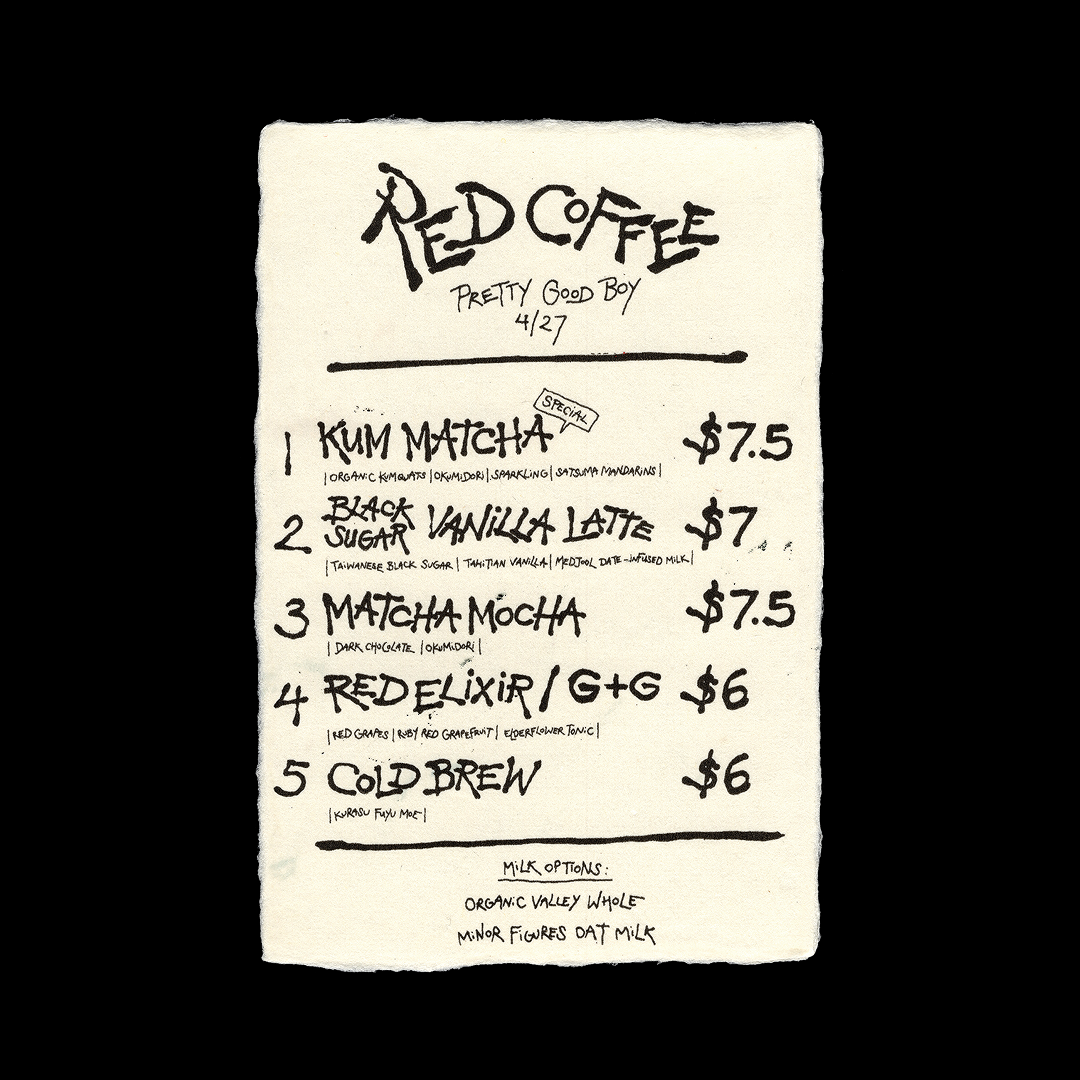 RED COFFEE
PRETTY GOOD BOY
4/27
SPECIAL
1 KUM MATCHA $7.5
|ORGANIC KUMQUATS|OKUMIDORI|SPARKLING|SATSUMA MANDARINS|
2 BLACK SUGAR VANILLA LATTE $7
|TAIWANESE BLACK SUGAR| TAHITIAN VANILLA|MEDJOOL DATE-INFUSED MILK|
3 MATCHA MOCHA $7.5
|DARK CHOCOLATE |OKUMIDORI|
4 RED ELIXIR / G+G $6
|RED GRAPES|RUBY RED GRAPEFRUIT| ELDERFLOWER TONIC|
5 COLD BREW $6
|KURASU FUYU MOE|
MILK OPTIONS:
ORGANIC VALLEY WHOLE
MINOR FIGURES OAT MILK